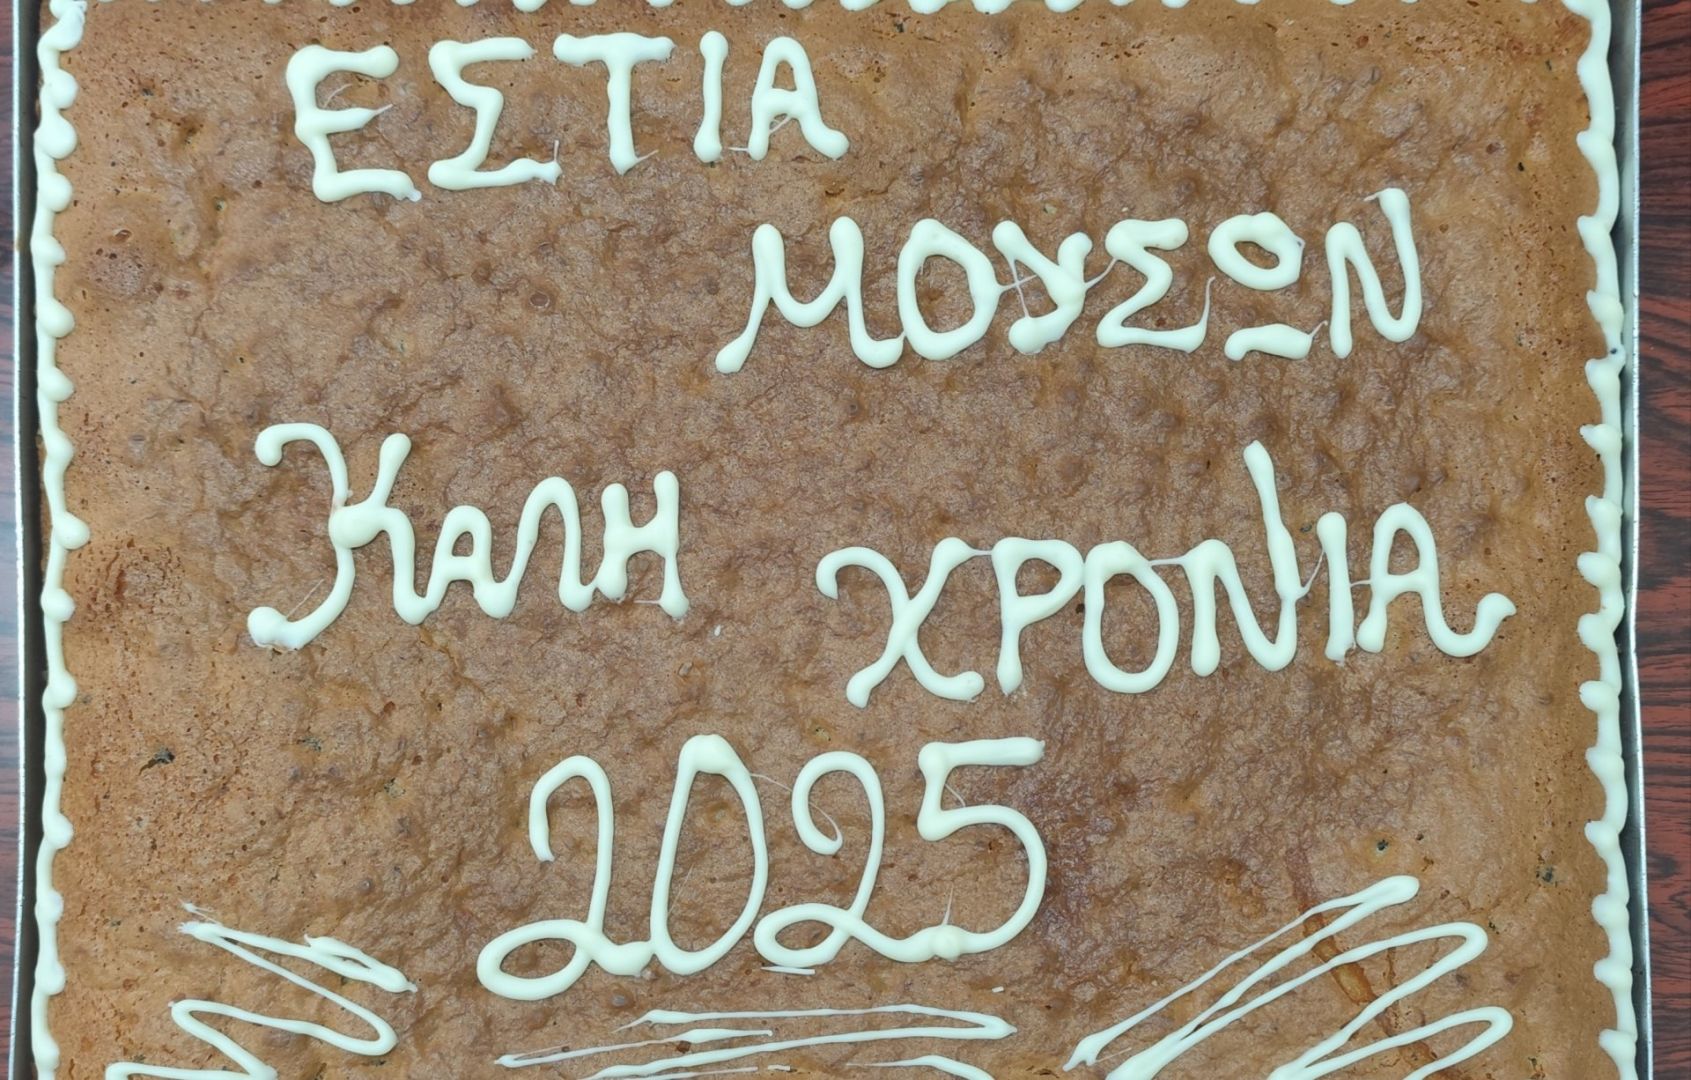 ΕΣΤΙΑ
ΜΟΥΣΩΝ
ΚΑΛΗ
ΧΡΟΝΙΑ
2025